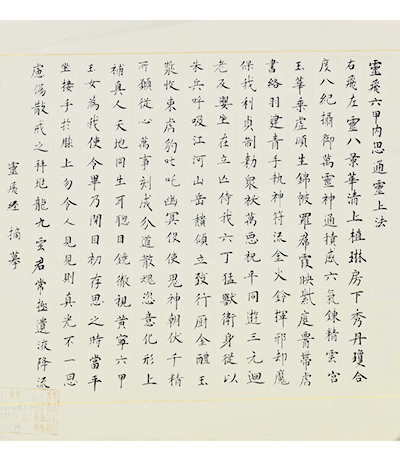 靈飛六甲內思通靈上法
右飛左靈八景華清上植琳房下秀丹瓊合
度八紀攝御萬靈神通積感六氣鍊精雲宮
玉華乘虛順生錦帔羅羣霞映紫庭霄帶虎
書絡羽建青手執神符流金火鈴揮邪却魔
保我利貞制勑眾祅萬惡泯平同遊三元迴
老反嬰坐在立亾侍我六丁猛獸衛身從以
朱兵呼吸江河山岳頹傾立致行廚金醴玉
漿收束虎豹叱吒幽冥役使鬼神朝伏千精
所願從心萬事剋成分道散魂恣意化形上
補真人天地同生耳聰目鏡徹視黃寧六甲
玉女為我使令畢乃開目初存思之時當平
坐接手於膝上勿令人見見則真光不一思
慮傷散戒之拜地龍九雲君常遺液降流
靈飛經 摘摹